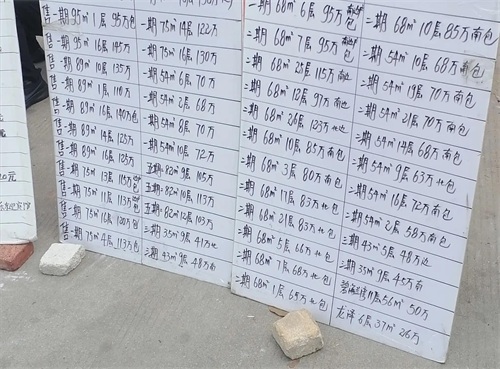 售一期 95㎡ 1层 95万包
售一期 95㎡ 16层 145万
售一期 89㎡ 10层 135万
售一期 89㎡ 1层 110万
售一期 89㎡ 16层 140万包
售一期 89㎡ 14层 125万
售一期 89㎡ 16层 125万
售一期 75㎡ 13层 115万
售一期 75㎡ 11层 113万
售一期 75㎡ 16层 120万包
售一期 75㎡ 4层 113万包
一期 75㎡ 14层 122万
一期 75㎡ 16层 130万
二期 54㎡ 6层 70万
二期 54㎡ 2层 68万
二期 54㎡ 8层 70万
二期 54㎡ 10层 72万
五期 82㎡ 9层 105万
五期 82㎡ 10层 113万
五期 82㎡ 12层 103万
二期 35㎡ 9层 41万北
二期 43㎡ 9层 48万南
二期 68㎡ 6层 95万
二期 68㎡ 7层 95万
二期 68㎡ 25层 115万南边
二期 68㎡ 12层 97万南边
二期 68㎡ 26层 123万北边
二期 68㎡ 10层 85万南包
二期 68㎡ 3层 80万南包
二期 68㎡ 17层 83万北包
二期 68㎡ 21层 83万北包
二期 68㎡ 5层 66万北包
二期 68㎡ 7层 68万北包
二期 68㎡ 1层 65万北包
二期 68㎡ 10层 85万南包
二期 54㎡ 10层 68万南包
二期 54㎡ 19层 70万南包
二期 54㎡ 21层 70万南包
二期 54㎡ 14层 68万南包
二期 54㎡ 9层 63万北包
二期 54㎡ 16层 72万南包
二期 54㎡ 2层 58万南包
二期 43㎡ 5层 48万
二期 35㎡ 9层 45万南
11层 56㎡ 50万
6层 37㎡ 26万